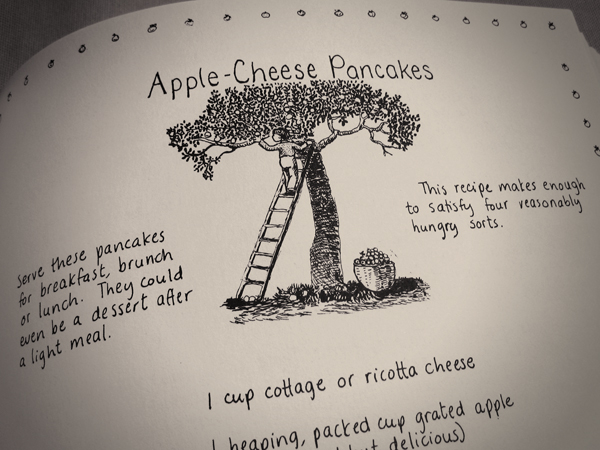 Apple-Cheese Pancakes
This recipe makes enough
to satisfy four reasonably
hungry sorts.
Serve these pancakes
for breakfast, brunch
or lunch. They could
even be a dessert after
a light meal.
1 cup cottage or ricotta cheese
1 heaping, packed cup grated apple
but delicious)